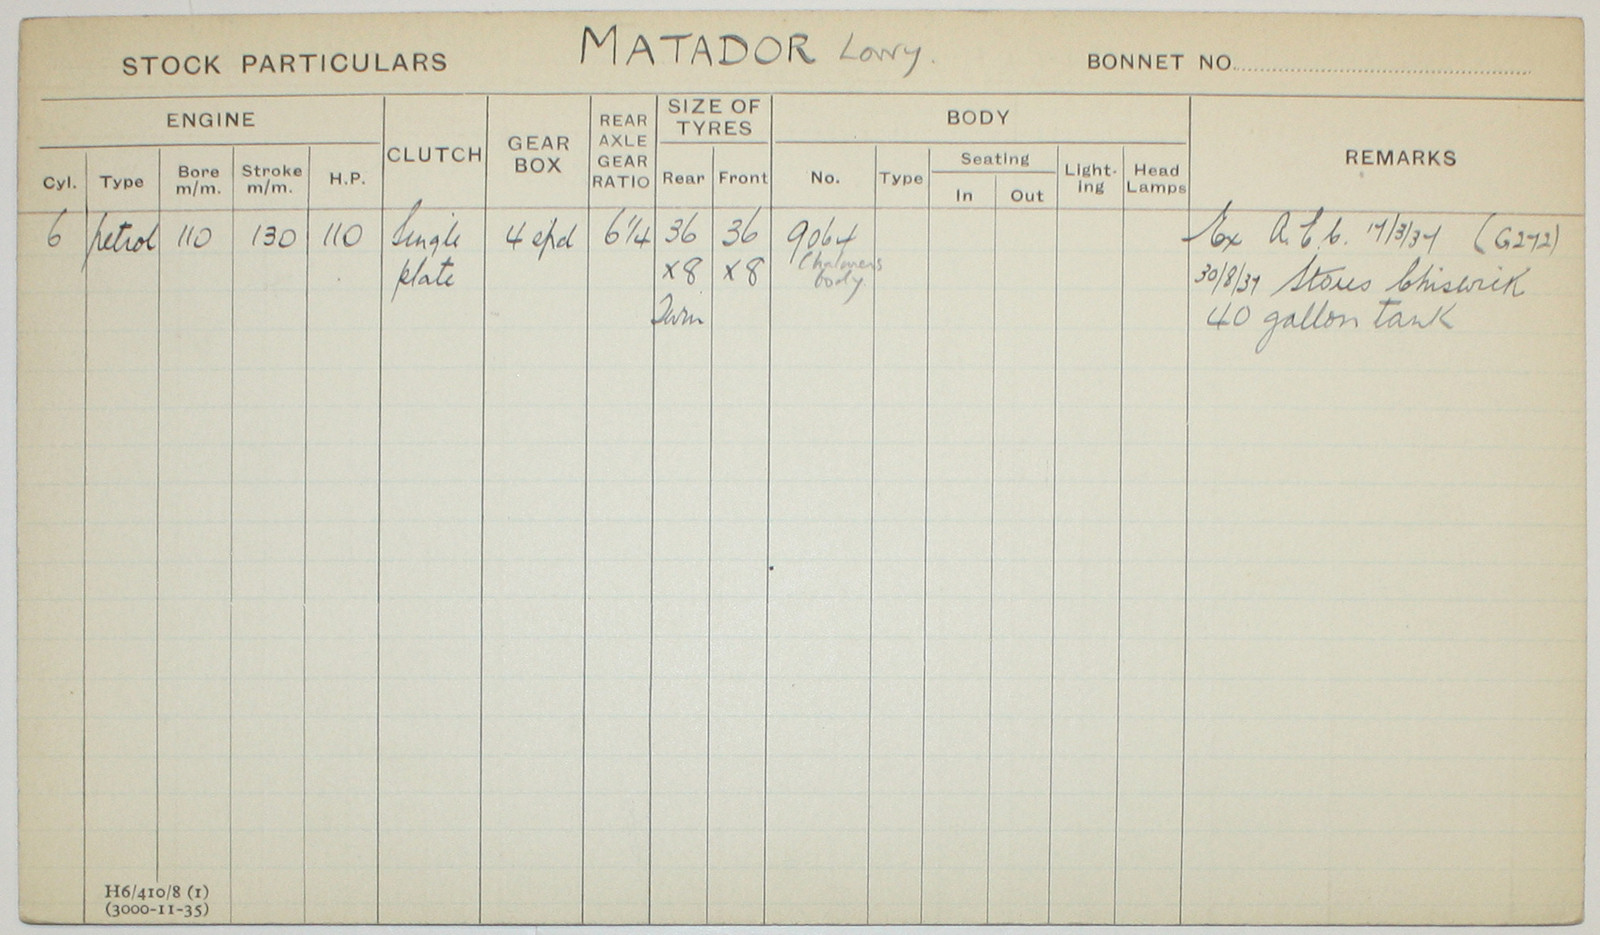 STOCK PARTICULARS MATADOR Lorry. BONNET NO.
ENGINE CLUTCH GEAR BOX REAR AXLE GEAR RATIO SIZE OF TYRES BODY REMARKS
Cyl. Type Bore m/m. Stroke m/m. H.P. Rear Front No. Type Seating In Out Light-ing Head Lamps
6 petrol 110 130 110 Single 4 spd 6¼ 36 36 9064 Ex A.E.C. 17/3/37 (G272)
plate x8 x8 Chalmers body 30/8/37 Stores Chiswick
Twin 40 gallon tank
H6/410/8 (1)
(3000-11-35)